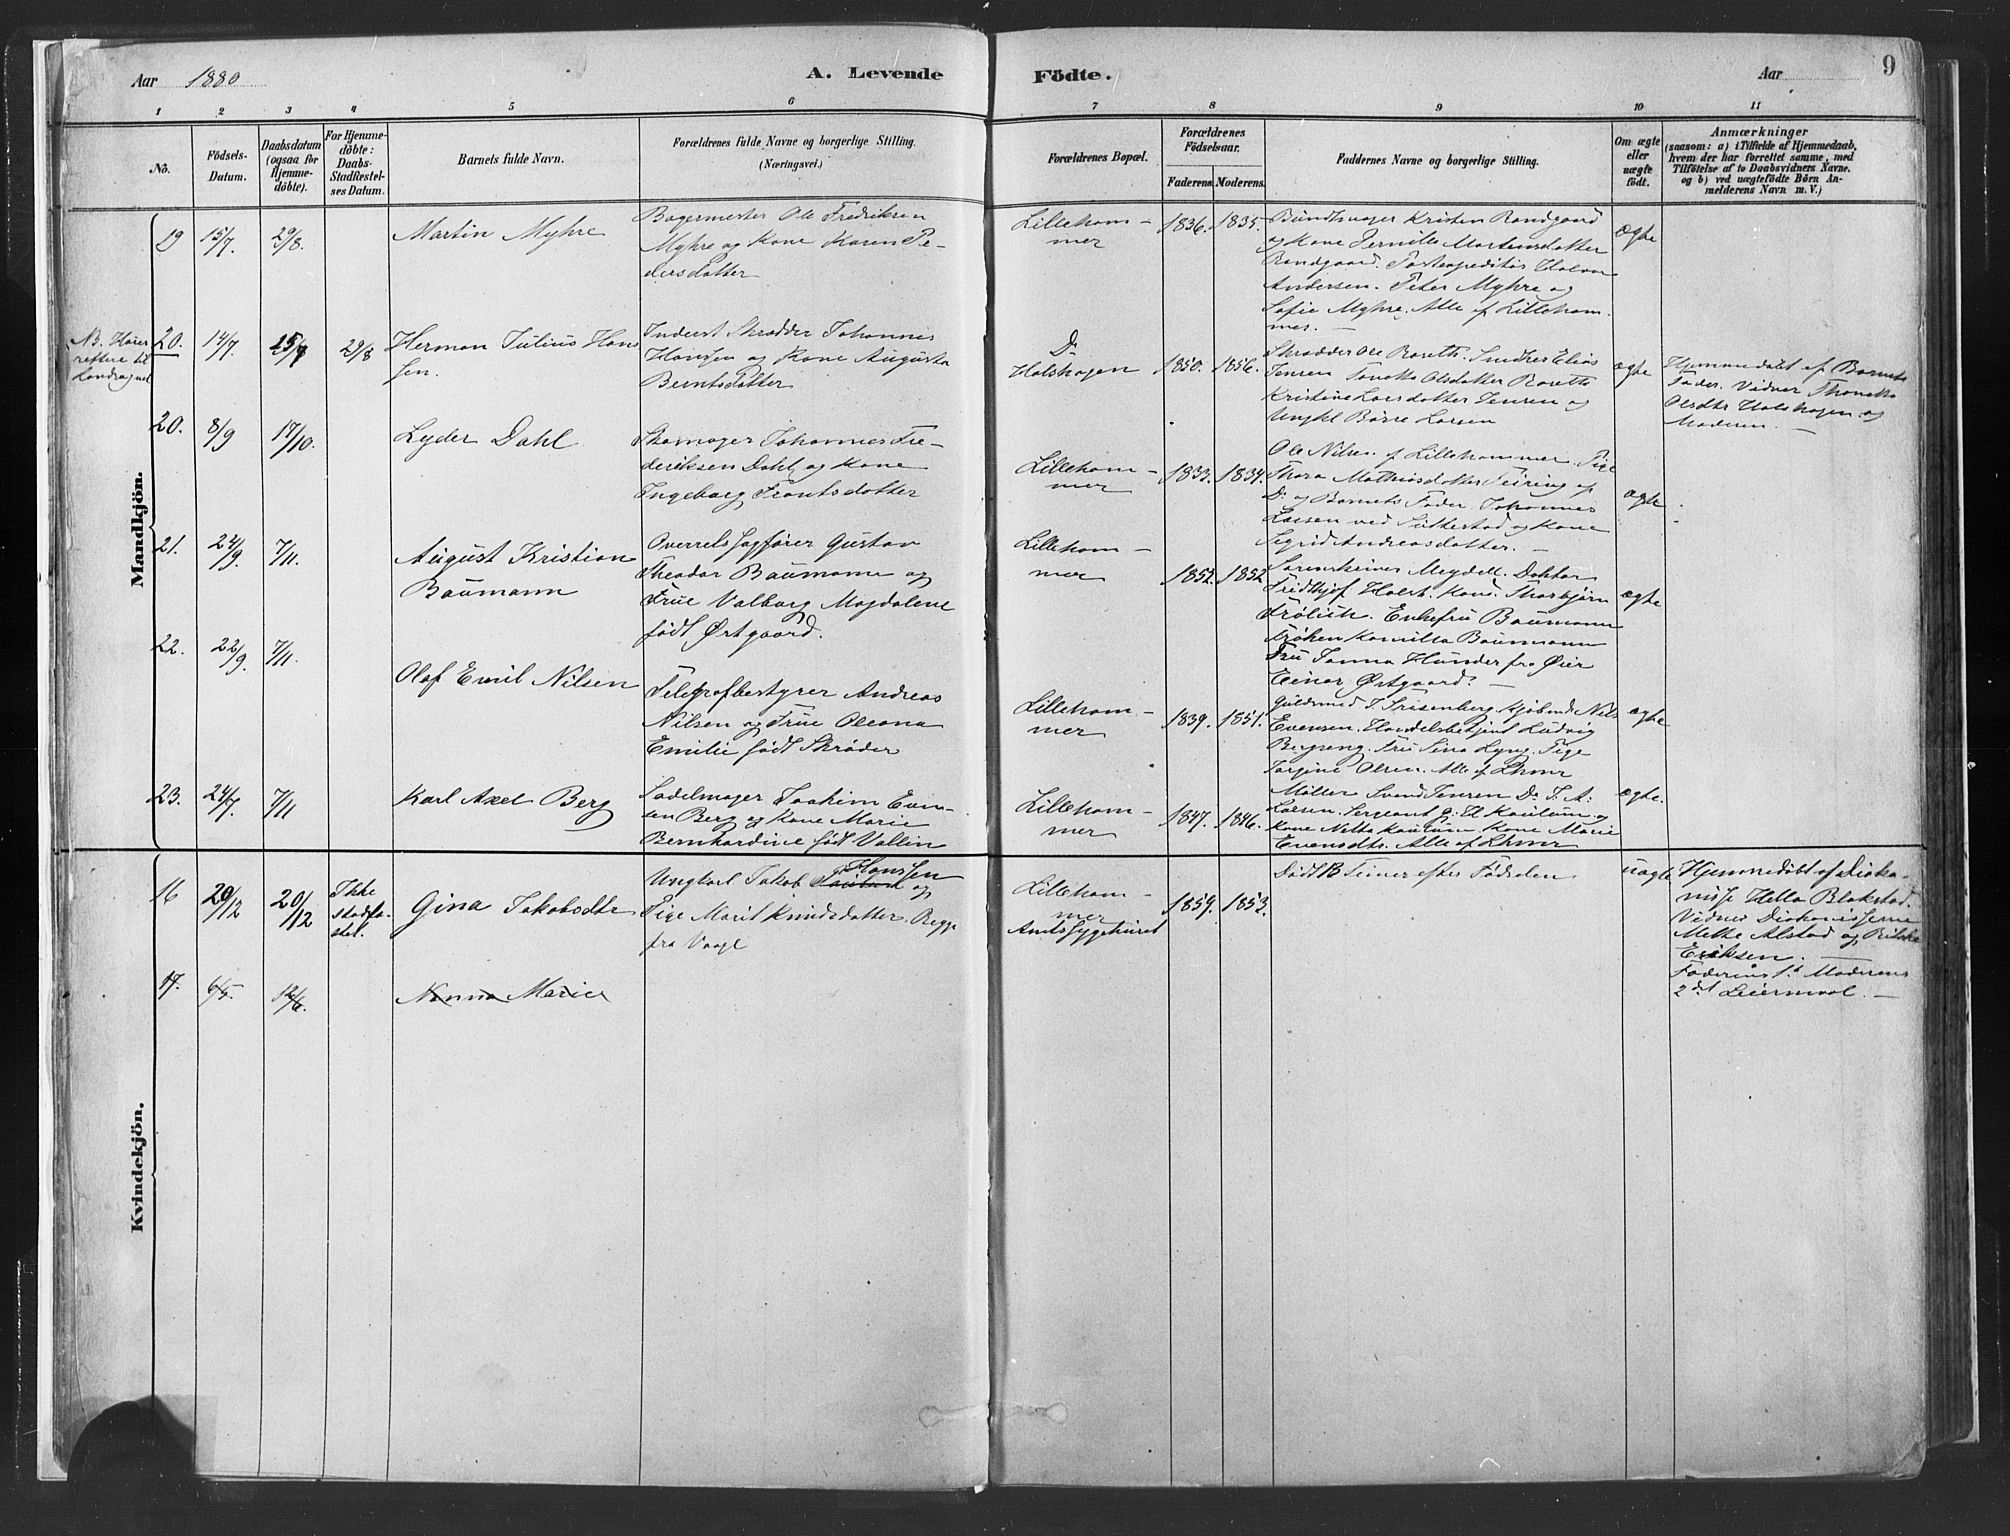 Aar 1880
A. Levende
Födte.
Aar
9
1 2 3 4 5 6 7 8 9 10 11
No.
Födsels-
Datum.
Daabsdatum
(ogsaa for
Hjemme-
döbte).
For Hjemme-
döbte:
Daabs-
Stadfæstel-
ses Datum.
Barnets fulde Navn.
Forældrenes fulde Navne og borgerlige Stilling.
(Næringsvei.)
Forældrenes Bopæl.
Forældrenes
Födselsaar.
Faderens. Moderens.
Faddernes Navne og borgerlige Stilling.
Om ægte
eller
uægte
födt.
Anmærkninger
(saasom: a) i Tilfælde af Hjemmedaab,
hvem der har forrettet samme, med
Tilföielse af to Daabsvidners Navne.
og b) ved uægtefödte Börn An-
melderens Navn m. V.)
Mandkjön.
19 15/7. 29/8. Martin Myhre
Bagermester Ole Fredriksen
Myhre og Kone Karen Pe-
dersdatter
Lilleham-
mer
1836. 1835.
Kristen Randgaard
og Kone Pernille Mortensdatter
Randgaard. Postexpeditör Halvor
Andersen. Peter Myhre og
Sofie Myhre. Alle af Lilleham-
mer.
Ægte
NB. Hører
til
Landsognet
20. 14/7. 29/8
Herman Julius Han
sen.
Inderst Skrædder Johannes
Hansen og Kone Augusta
Berntsdatter
Do
Holshagen
1850. 1856.
Skrædder Ole Roseth. Snedker Elias
Jensen Tonette Olsdatter Roseth
Kristine Larsdatter Jensen og
Ungkl Börre Larsen
ægte
Hjemmedøbt af Barnets
Fader. Vidner Thonette
Olsdtr Holshagen og
Moderen.
20. 8/9 17/10. Lyder Dahl
Skomager Johannes Fre-
deriksen Dahl og Kone
Ingeborg Frantsdatter
Lilleham-
mer
1833. 1834.
Ole Nilsen af Lillehammer. Pige
Thora Mathiasdatter Feiring af
Do og Barnets Fader. Johannes
Larsen ved Sutterstad og Kone
Sigrid Andreasdatter.
ægte
21. 24/9. 7/11. August Kristian
Baumann
Overretssagfører Gustav
Theodor Baumann og
Frue Valborg Magdalene
født Østgaard.
Lilleham-
mer
1852. 1852
Sorenskriver Meydell. Doktor
Fridthjof Holst. Kons. Thorbjørn
Frølich. Enkefru Baumann
Frøken Kamilla Baumann
Fru Hunder fra Øier
Einar Østgaard.
ægte
22. 22/9. 7/11. Olaf Emil Nilsen
Telegrafbestyrer Andreas
Nilsen og Frue Oleana
Emilie født Skrøder
Lilleham-
mer
1839. 1851.
Guldsmed T. Frisenberg. Kjøbmd Nils
Evensen. Handelsbetjent Ludvig
Bergseng. Fru Sina Lyng. Pige
Jorgine Olsen. Alle af Lhmr
ægte
23. 24/7. 7/11 Karl Axel Berg
Sadelmager Joakim Even-
sen Berg og Kone Marie
Bernhardine født Vallin
Lilleham-
mer
1847. 1846.
Møller Svend Jensen Do J. A.
Larsen. Sergeant og
Kone Kone Marie
Evensdtr. Alle af Lhmr
ægte.
Kvindekjön.
16 20/12 20/12 Ikke
stadfæ-
stet.
Gina Jakobsdtr
Ungkarl Jakob Hanssen og
Pige Marit Knudsdatter.
fra Vaage
Lilleham-
mer
Amtssygehuset
1859. 1853.
Dødt 13 Timer efter Fødselen
uægte
Hjemmedøbt af Diako-
nisse Hella Blakstad.
Vidner Diakonisserne
Mette Alstad og
Eriksen.
Faderens 1ste Moderens
2det Leiermaal.
17. 6/5. 12/6. Nanna Marie